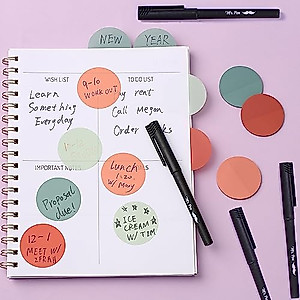 NEW YEAR
WISH LIST
TO DO LIST
9-10
WORKOUT
Learn
Something
Everyday
Pay rent
Call Megan
Order
IMPORTANT NOTES
Proposal
due!
Lunch
1:20
W/ Mary
12-1
MEET W/
ICE
CREAM
W/ TOM